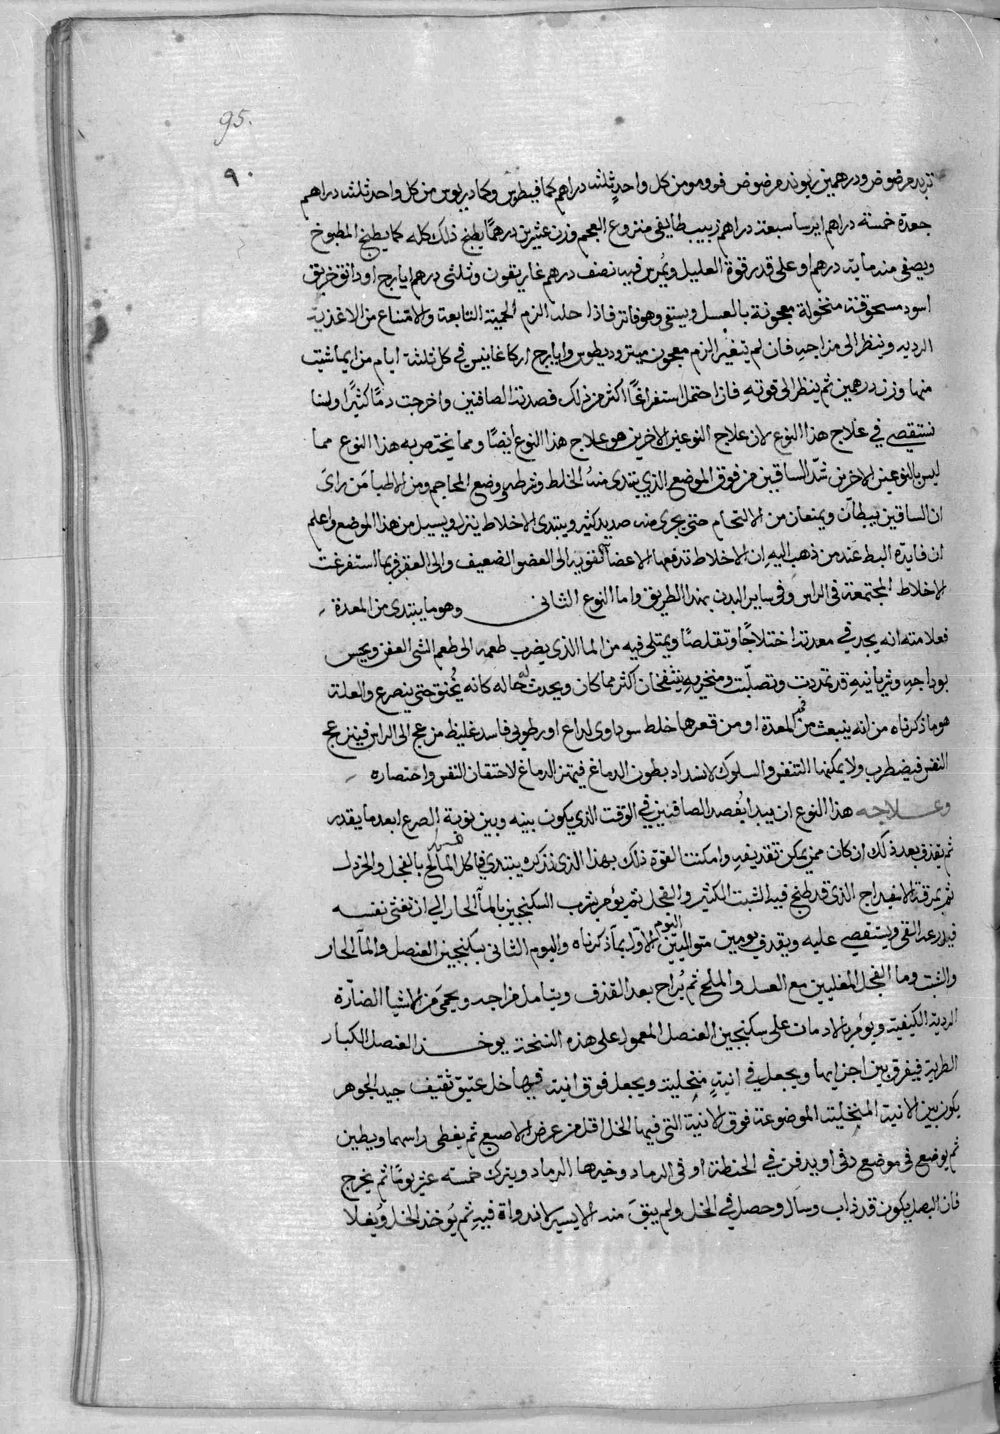 95.
٩٠
تربد مرضوض ودرهمين ريوند مرضوض فوومو من كل واحد ثلث دراهم كمافيطوس وكمادريوس من كل واحد ثلث دراهم
جعدة خمسة دراهم ايرسا سبعة دراهم زبيب طايفي منزوع العجم وزن عشرين درهما يطبخ ذلك كله كما يطبخ المطبوخ
ويصفى منه ماية درهم او على قدر قوة العليل ويمرس فيه نصف درهم غاريقون وثلثى درهم ايارج او دانق خربق
اسود مسحوقة منخولة معجونة بالعسل ويسقى وهو فاتر فاذا حله الزم الحمية التابعة والامتناع من الاغذية
الردية وينظر الى مزاجه فان لم يتغير الزم معجون ميثروديطوس وايارج اركاغانيس في كل ثلثة ايام من ايهما شيت
منها وزن درهمين ثم ينظر الى قوته فان احتمل استفراغًا اكثر من ذلك فصدته الصافنين واخرجت دمًا كثيرًا ولسنا
نستقصي في علاج هذا النوع لان علاج النوعين الاخرين هو علاج هذا النوع ايضًا ومما يختص به هذا النوع مما
ليس بالنوعين الاخرين شدّ الساقين من فوق الموضع الذي يبتدى منه الخلط وشرطه ووضع المحاجم ومن الاطبا من راى
ان الساقين يبطان ويمنعان من الالتحام حتى يجرى منه صديد كثير ويبتدى الاخلاط ينزل ويسيل من هذا الموضع واعلم
ان فايدة البط عند من ذهب اليه ان الاخلاط تدفعها الاعضا القوية الى العضو الضعيف والى العقر فربما استفرغت
الاخلاط المجتمعة في الراس وفي ساير البدن بهذا الطريق واما النوع الثانى وهو ما يبتدى من المعدة
فعلامته انه يجد في معدته اختلاجًا وتقلصًا ويمتلى فيه من الما الذى يضرب طعمه الى طعم الشى العفن ويحس
بوداجه وشريانيه قد تمددت وتصلّبت ومنخريه ينتفخان اكثر مما كان ويحدث له حاله كانه يخنق حتى ينصرع والعلة
هو ما ذكرناه من انه ينبعث من فم المعدة او من قعرها خلط سوداوى لداع او رطوبى فاسد غليظ مزعج الى الراس فينزعج
النفس فيضطرب ولا يمكنها التنفس والسلوك لانسداد بطون الدماغ فيهتز الدماغ لاحتقان النفس وانحصاره
وعلاجه هذا النوع ان يبدا بفصد الصافنين في الوقت الذي يكون بينه وبين نوبة الصرع ابعد ما يقدر
ثم يقذف بعد ذلك ان كان ممن يمكن تقذيفه وامكنت القوة ذلك بهذا الذى نذكره يبتدي فياكل السمك المالح بالفجل والخردل
ثم بمرقة الاسفيداج الذى قد طبخ فيه الشبت الكثير والفجل ثم يؤمر بشرب السكنجبين بالما الحار الى ان تغثى نفسه
فيذرعه القي ويستقصي عليه ويقذف يومين متواليين اليوم الاول بما ذكرناه واليوم الثانى بسكنجبين العنصل والما الحار
والشبت وما الفجل المغليين مع العسل والملح ثم يراح بعد القذف ويتامل مزاجه ويحمى من الاشيا الضارة
الردية الكيفية ويؤمر بالادمان على سكنجبين العنصل المعمول على هذه النسخة يوخذ العنصل الكبار
الطرية فيفرق بين اجزايها ويجعل في انية منخلية ويجعل فوق انية فيها خل عتيق ثقيف جيد الجوهر
يكون بين الانية المنخلية الموضوعة فوق الانية التى فيها الخل اقل من عرض الاصبع ثم يغطى راسهما ويطين
ثم يوضع في موضع دفى او يدفن في الحنطة او في الرماد وخيرها الرماد ويترك خمسة عشر يومًا ثم يخرج
فان البصل يكون قد ذاب وسال وحصل في الخل ولم يبق منه الا يسير لا نداوة فيه ثم يوخذ الخل ويغلا